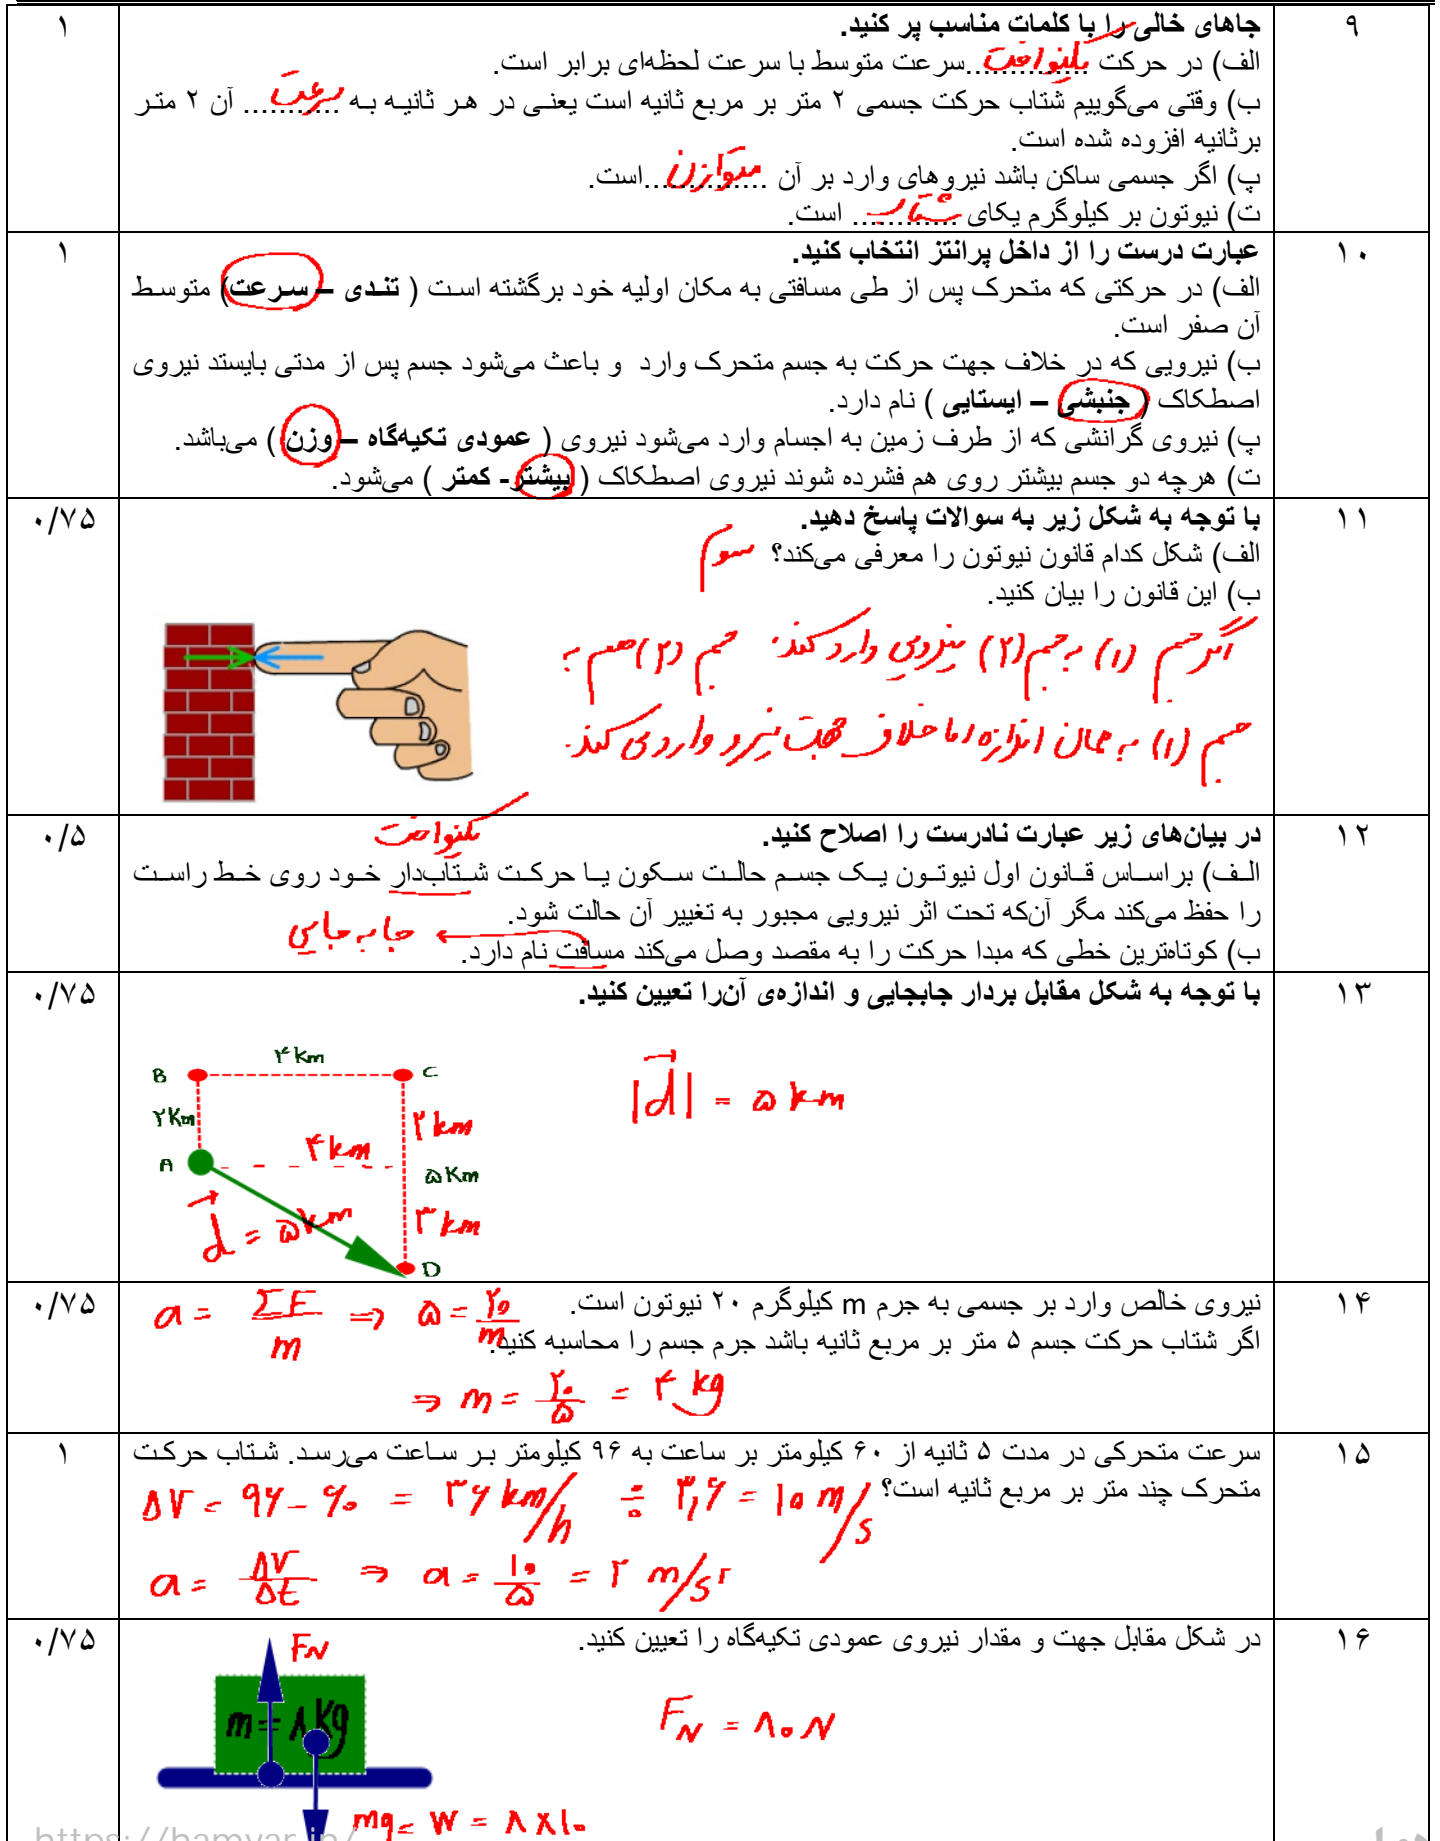 ۹
جاهای خالی را با کلمات مناسب پر کنید.
۱
الف) در حرکت یکنواخت سرعت متوسط با سرعت لحظه‌ای برابر است.
ب) وقتی می‌گوییم شتاب حرکت جسمی ۲ متر بر مربع ثانیه است یعنی در هر ثانیه به سرعت آن ۲ متر
برثانیه افزوده شده است.
پ) اگر جسمی ساکن باشد نیروهای وارد بر آن متوازن است.
ت) نیوتون بر کیلوگرم یکای شتاب است.
۱۰
عبارت درست را از داخل پرانتز انتخاب کنید.
۱
الف) در حرکتی که متحرک پس از طی مسافتی به مکان اولیه خود برگشته است ( تندی – سرعت) متوسط
آن صفر است.
ب) نیرویی که در خلاف جهت حرکت به جسم متحرک وارد و باعث می‌شود جسم پس از مدتی بایستد نیروی
اصطکاک ( جنبشی – ایستایی ) نام دارد.
پ) نیروی گرانشی که از طرف زمین به اجسام وارد می‌شود نیروی ( عمودی تکیه‌گاه – وزن ) می‌باشد.
ت) هرچه دو جسم بیشتر روی هم فشرده شوند نیروی اصطکاک ( بیشتر- کمتر ) می‌شود.
۱۱
با توجه به شکل زیر به سوالات پاسخ دهید.
۰/۷۵
الف) شکل کدام قانون نیوتون را معرفی می‌کند؟ سوم
ب) این قانون را بیان کنید.
اگر جسم (۱) به جسم (۲) نیرویی وارد کند. جسم (۲) هم به
جسم (۱) به همان اندازه اما خلاف جهت نیرو وارد می کند.
۱۲
در بیان‌های زیر عبارت نادرست را اصلاح کنید.
۰/۵
یکنواخت
الف) براساس قانون اول نیوتون یک جسم حالت سکون یا حرکت شتاب‌دار خود روی خط راست
را حفظ می‌کند مگر آن‌که تحت اثر نیرویی مجبور به تغییر آن حالت شود.
جابه جایی
ب) کوتاه‌ترین خطی که مبدا حرکت را به مقصد وصل می‌کند مسافت نام دارد.
۱۳
با توجه به شکل مقابل بردار جابجایی و اندازه‌ی آن‌را تعیین کنید.
۰/۷۵
۴ Km
B
C
۲ Km
۲ km
|d| = ۵ km
A
۴ km
۵ Km
d = ۵ km
۳ km
D
۱۴
نیروی خالص وارد بر جسمی به جرم m کیلوگرم ۲۰ نیوتون است.
a = ΣF/m ⇒ ۵ = ۲۰/m
۰/۷۵
اگر شتاب حرکت جسم ۵ متر بر مربع ثانیه باشد جرم جسم را محاسبه کنید.
⇒ m = ۲۰/۵ = ۴ kg
۱۵
سرعت متحرکی در مدت ۵ ثانیه از ۶۰ کیلومتر بر ساعت به ۹۶ کیلومتر بر ساعت می‌رسد. شتاب حرکت
۱
متحرک چند متر بر مربع ثانیه است؟
ΔV = ۹۶ - ۶۰ = ۳۶ km/h ÷ ۳,۶ = ۱۰ m/s
a = ΔV/Δt ⇒ a = ۱۰/۵ = ۲ m/s۲
۱۶
در شکل مقابل جهت و مقدار نیروی عمودی تکیه‌گاه را تعیین کنید.
۰/۷۵
FN
m = ۸ Kg
FN = ۸۰ N
mg = W = ۸ × ۱۰
https://hamyar.in/